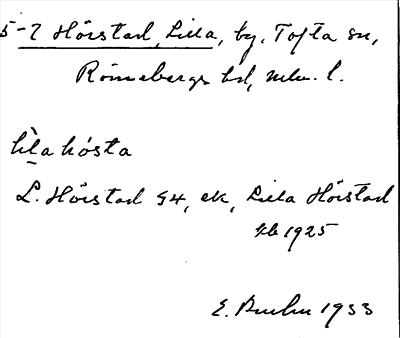 5-7 Hörstad, Lilla, by, Tofta sn,
Rönnebergs hd, Mlm. l.
lìla hósta
L. Hörstad G4, ek, Lilla Hörstad
kb 1925
E. 1933